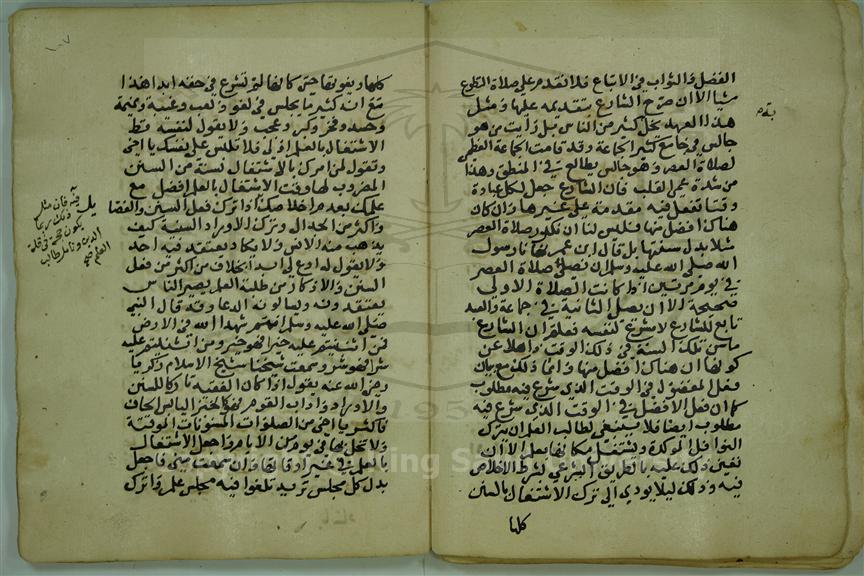 الفضل والثواب في الاتباع فلا نقدم على صلاة التطوع
شيأ الا ان صرح الشارع بتقديمه عليها ومثل
هذا العهد يخل كثير من الناس بل رأيت من هو
جالس في جامع كثير الجماعة وقد قامت الجماعة العظمى
لصلاة العصر وهو جالس يطالع في المنطق وهذا
من شدة عمى القلب فان الشارع جعل لكل عبادة
وقتا تفعل فيه مقدمة على غيرها وان كان
هناك افضل منها فليس لنا ان نكرر صلاة العصر
مثلا بدل سنتها بل قال ابن عمر نهانا رسول
الله صلى الله عليه وسلم ان نصلي صلاة العصر
في يوم مرتين اذا كانت الصلاة الاولى
صحيحة الا ان يصلي الثانية في جماعة والعبد
تابع للشارع لا مشرع لنفسه فعلم ان الشارع
ما سن تلك السنة في ذلك الوقت ذاهلا عن
كونها ان هناك افضل منها وانما ذلك مع بيان
فعل المفضول في الوقت الذي شرع فيه مطلوب
كما ان فعل الافضل في الوقت الذي شرع فيه
مطلوب ايضا فلا ينبغي لطالب العلم ان يترك
النوافل الموكدة ويشتغل مكانها بعلم الا ان
تعين ذلك عليه بالطريق الشرعي لشرط الاخلاص
فيه وذلك ليلا يودي الى ترك الاشتغال بالسنن
كلها
١٠٧
كلها ويفوتها حتى كانها لم تشرع في حقه ابدا هذا
مع انه كثيرا ما يجلس في لغو ولعب وغيبة ونميمة
وحسد وفخر وكبر وعجب ولا يقول لنفسه قط
الاشتغال بالعلم اولى فلا تلبس على نفسك يا اخي
وتقول لمن امرك بالاشتغال بسنة من السنن
المضروب لها وقت الاشتغال بالعلم افضل مع
علمك بعدم اخلاصك اذا ترك فعل السنن والفضا
واكثر من الجدال وترك الاوراد السنة كيف
يذهب منه الانس ولا يكاد يعتقد فيه احد
ولا يقول له ادع لي ابدا بخلاف من اكثر من فعل
السنن والاذكار من طلبة العلم يصير الناس
يعتقدونه ويسالونه الدعا وقد قال النبي
صلى الله عليه وسلم انتم شهدا الله في الارض
فمن اثنيتم عليه خيرا فهو خير ومن اثنيتم عليه
شرا فهو شر وسمعت شيخنا شيخ الاسلام زكريا
رضي الله عنه يقول اذا كان الفقيه تاركا للسنن
والاوراد واداب القوم فهو كالخبز اليابس الحاف
فاكثر يا اخي من الصلوات المسنونات الموقتة
ولا تخل بها في يوم من الايام واجعل الاشتغال
بالعلم في غير اوقاتها وان سمعت مني فاجعل
بدل كل مجلس تريد تلغوا فيه مجلس علم واترك